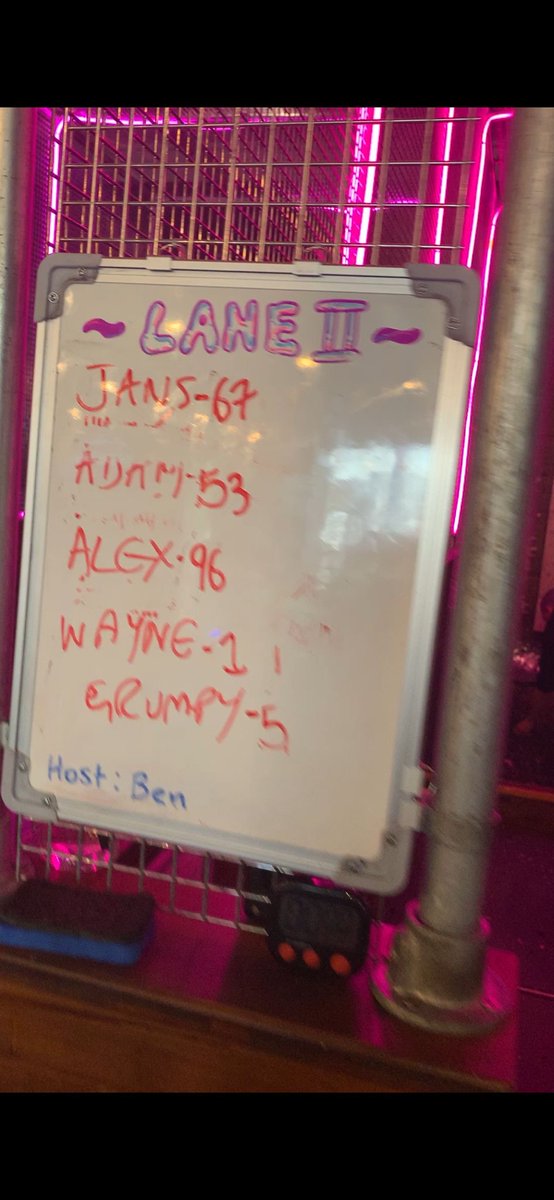 ~ LANE II ~
JANS-67
ADAM-53
ALEX-96
WAYNE-1
GRUMPY-5
Host: Ben